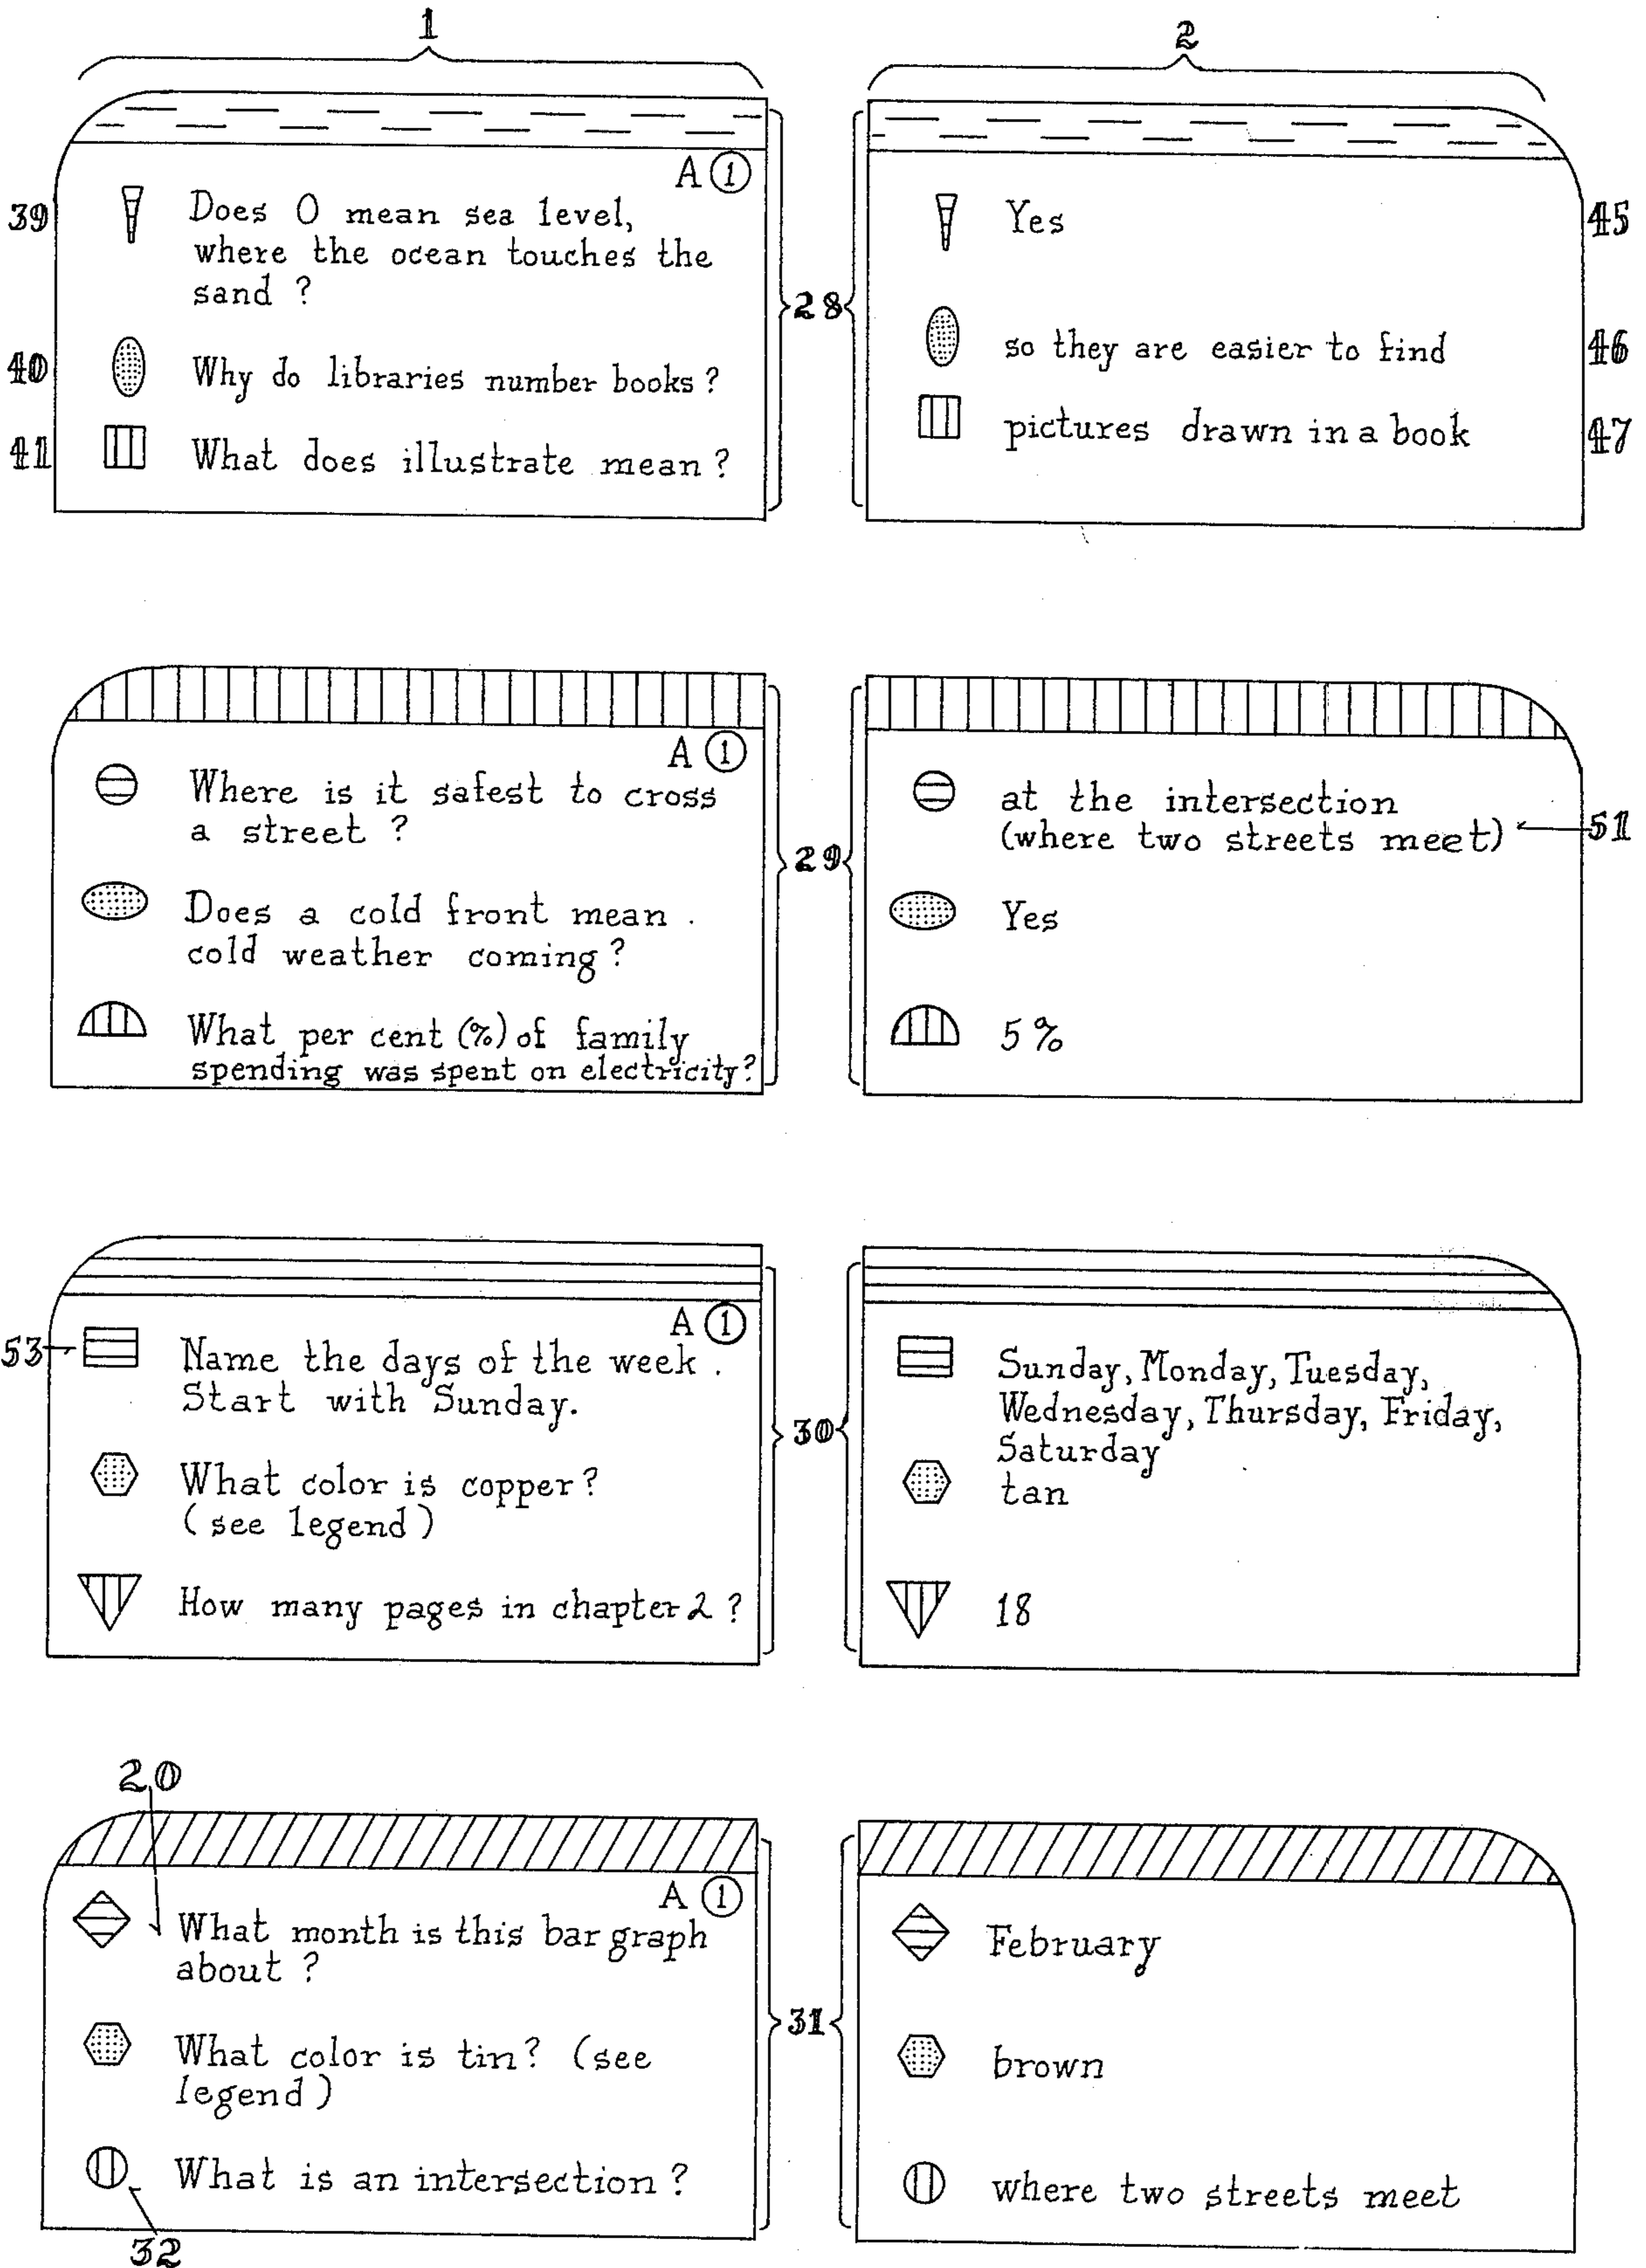 1
2
A ①
39
Does 0 mean sea level,
where the ocean touches the
sand ?
40
Why do libraries number books ?
41
What does illustrate mean ?
28
Yes
45
so they are easier to find
46
pictures drawn in a book
47
A ①
Where is it safest to cross
a street ?
Does a cold front mean .
cold weather coming ?
What per cent (%) of family
spending was spent on electricity?
29
at the intersection
(where two streets meet)
51
Yes
5 %
A ①
53
Name the days of the week .
Start with Sunday.
What color is copper ?
( see legend )
How many pages in chapter 2 ?
30
Sunday, Monday, Tuesday,
Wednesday, Thursday, Friday,
Saturday
tan
18
20
A ①
What month is this bar graph
about ?
What color is tin ? (see
legend )
What is an intersection ?
32
31
February
brown
where two streets meet